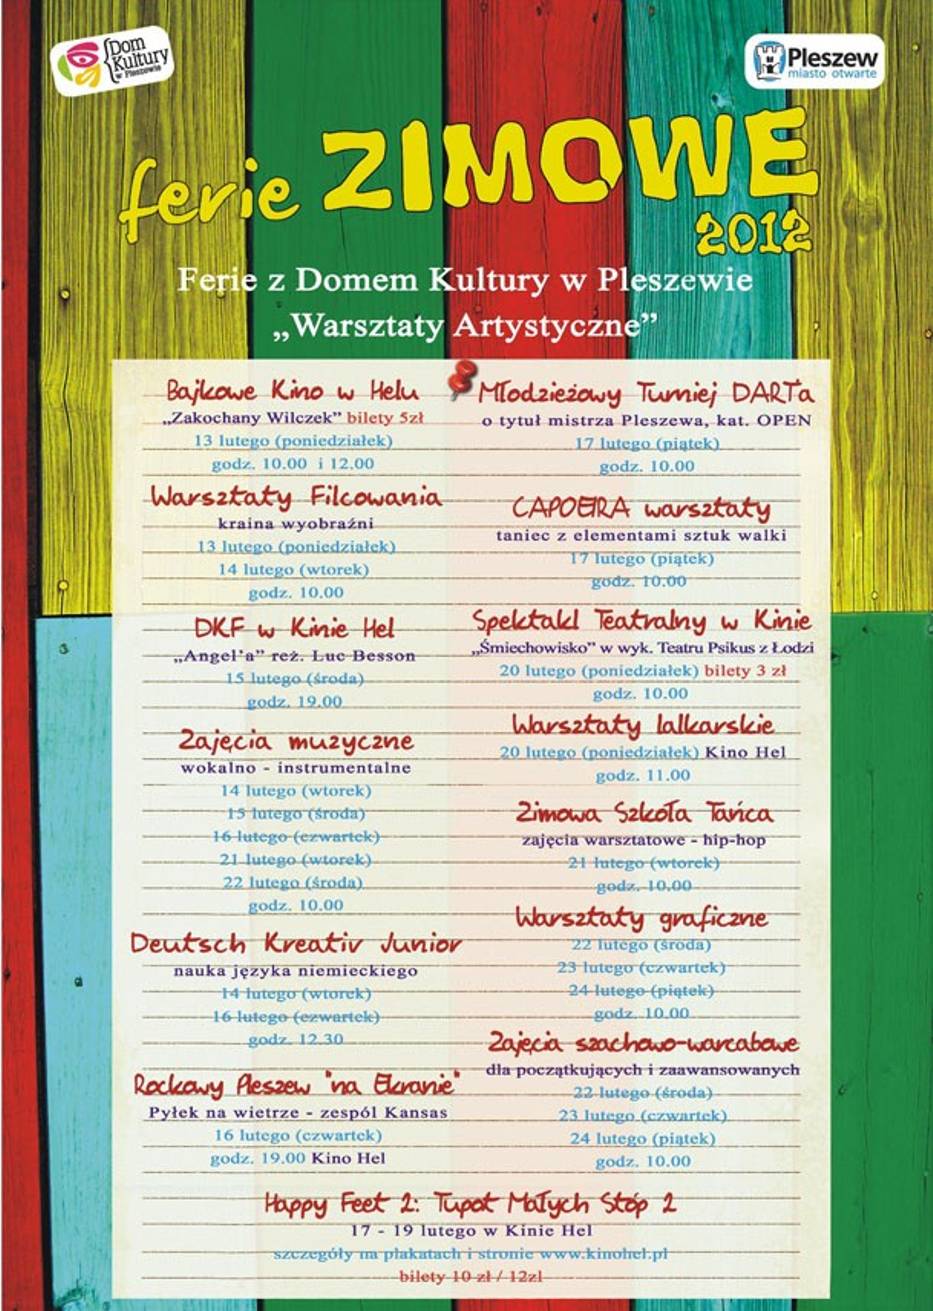 Dom
Kultury
w Pleszewie
Pleszew
miasto otwarte
ferie ZIMOWE
2012
Ferie z Domem Kultury w Pleszewie
„Warsztaty Artystyczne”
Bajkowe Kino w Helu
„Zakochany Wilczek” bilety 5zł
13 lutego (poniedziałek)
godz. 10.00 i 12.00
Warsztaty Filcowania
kraina wyobraźni
13 lutego (poniedziałek)
14 lutego (wtorek)
godz. 10.00
DKF w Kinie Hel
„Angel’a” reż. Luc Besson
15 lutego (środa)
godz. 19.00
Zajęcia muzyczne
wokalno - instrumentalne
14 lutego (wtorek)
15 lutego (środa)
16 lutego (czwartek)
21 lutego (wtorek)
22 lutego (środa)
godz. 10.00
Deutsch Kreativ Junior
nauka języka niemieckiego
14 lutego (wtorek)
16 lutego (czwartek)
godz. 12.30
Rockowy Pleszew "na Ekranie"
Pyłek na wietrze - zespól Kansas
16 lutego (czwartek)
godz. 19.00 Kino Hel
Młodzieżowy Turniej DARTa
o tytuł mistrza Pleszewa, kat. OPEN
17 lutego (piątek)
godz. 10.00
CAPOEIRA warsztaty
taniec z elementami sztuk walki
17 lutego (piątek)
godz. 10.00
Spektakl Teatralny w Kinie
„Śmiechowisko” w wyk. Teatru Psikus z Łodzi
20 lutego (poniedziałek) bilety 3 zł
godz. 10.00
Warsztaty lalkarskie
20 lutego (poniedziałek) Kino Hel
godz. 11.00
Zimowa Szkoła Tańca
zajęcia warsztatowe - hip-hop
21 lutego (wtorek)
godz. 10.00
Warsztaty graficzne
22 lutego (środa)
23 lutego (czwartek)
24 lutego (piątek)
godz. 10.00
Zajęcia szachowo-warcabowe
dla początkujących i zaawansowanych
22 lutego (środa)
23 lutego (czwartek)
24 lutego (piątek)
godz. 10.00
Happy Feet 2: Tupot Małych Stóp 2
17 - 19 lutego w Kinie Hel
szczegóły na plakatach i stronie www.kinohel.pl
bilety 10 zł / 12zl